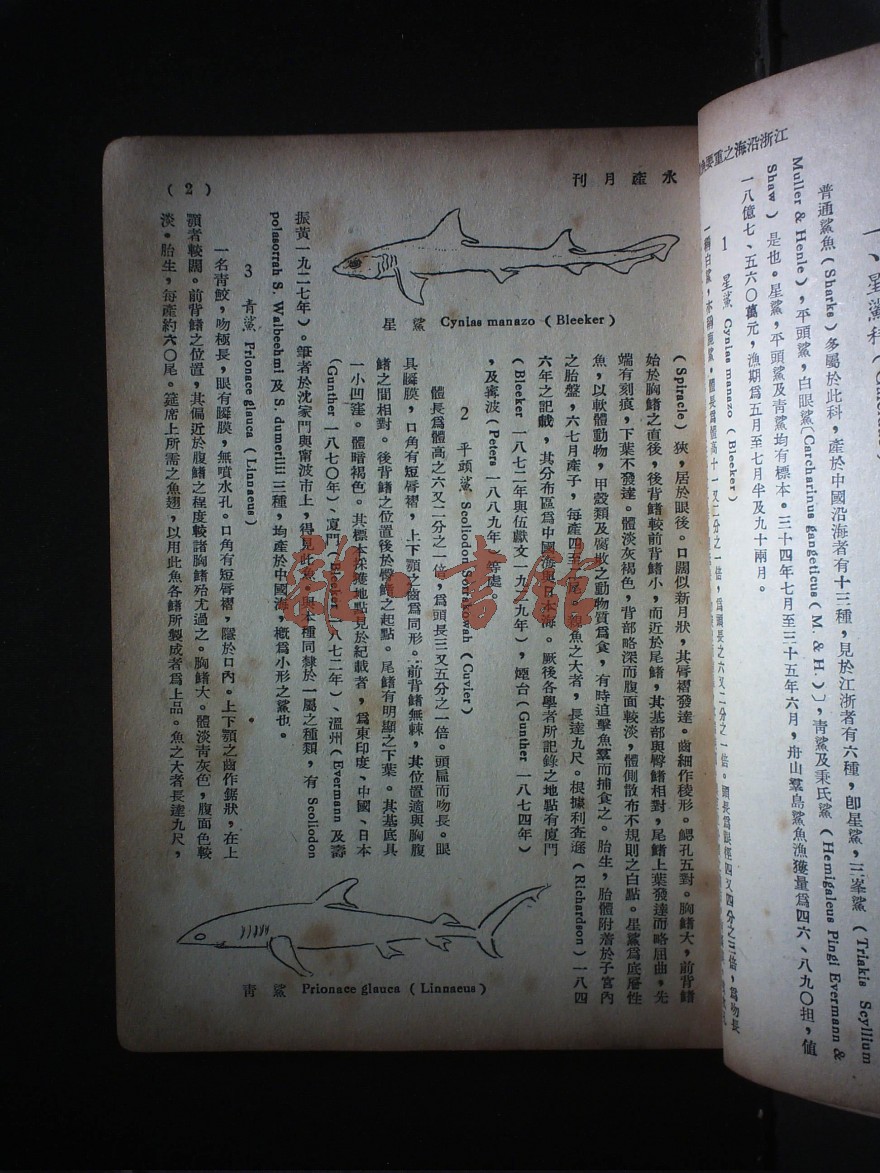 江浙沿海之重要
普通鯊魚(Sharks)多屬於此科，產於中國沿海者有十三種，見於江浙者有六種，卽星鯊，三峯鯊(Triakis Scyllium
Muller & Henle)，平頭鯊，白眼鯊〔Carcharinus gangeticus(M. & H.)〕，青鯊及秉氏鯊(Hemigaleus Pingi Evermann &
Shaw)是也。星鯊，平頭鯊及青鯊均有標本。三十四年七月至三十五年六月，舟山羣島鯊魚漁獲量爲四六、八九〇担，値
一八億七、五六〇萬元，漁期爲五月至七月半及九十兩月。
1 星鯊 Cynias manazo (Bleeker)
水產月刊
(2)
星鯊 Cynias manazo (Bleeker)
(Spiracle)狹，居於眼後。口闊似新月狀，其唇褶發達。齒細作稜形。鰓孔五對。胸鰭大，前背鰭
始於胸鰭之直後，後背鰭較前背鰭小，而近於尾鰭，其基部與臀鰭相對，尾鰭上葉發達而略屈曲，先
端有刻痕，下葉不發達。體淡灰褐色，背部略深而腹面較淡，體側散布不規則之白點。星鯊爲底層性
魚，以軟體動物，甲殼類及腐敗之動物質爲食，有時追擊魚羣而捕食之。胎生，胎體附着於子宮內
之胎盤，六七月產子，每產四 魚之大者，長達九尺。根據利查遜(Richardson)一八四
六年之記載，其分布區爲中國海與日本海。厥後各學者所記錄之地點有廈門
(Bleeker 一八七二年與伍獻文一九二九年)，煙台(Gunther 一八七四年)
，及寗波(Peters 一八八九年)等處。
2 平頭鯊 Scoliodon Sorrakowah (Cuvier)
體長爲體高之六又二分之一倍，爲頭長三又五分之一倍。頭扁而吻長。眼
具瞬膜，口角有短唇褶，上下顎之齒爲同形。前背鰭無棘，其位置適與胸腹
鰭之間相對。後背鰭之位置後於臀鰭之起點。尾鰭有明顯之下葉。其基底具
一小凹窪。體暗褐色。其標本採獲地點見於紀載者，爲東印度、中國、日本
(Gunther 一八七〇年)、廈門(Bleeker 一八七二年)、溫州(Evermann 及壽
振黃一九二七年)。筆者於沈家門與甯波市上，得見此魚。與本種同隸於一屬之種類，有 Scoliodon
polasorrah S. Walbeehmi 及 S. dumerilii 三種，均產於中國海，概爲小形之鯊也。
3 青鯊 Prionace glauca (Linnaeus)
一名青鮫，吻極長，眼有瞬膜，無噴水孔。口角有短唇褶，隱於口內。上下顎之齒作鋸狀，在上
顎者較闊。前背鰭之位置，其偏近於腹鰭之程度較諸胸鰭殆尤過之。胸鰭大。體淡青灰色，腹面色較
淡。胎生，每產約六〇尾。筵席上所需之魚翅，以用此魚各鰭所製成者爲上品。魚之大者長達九尺，
青鯊 Prionace glauca (Linnaeus)
雜·書館